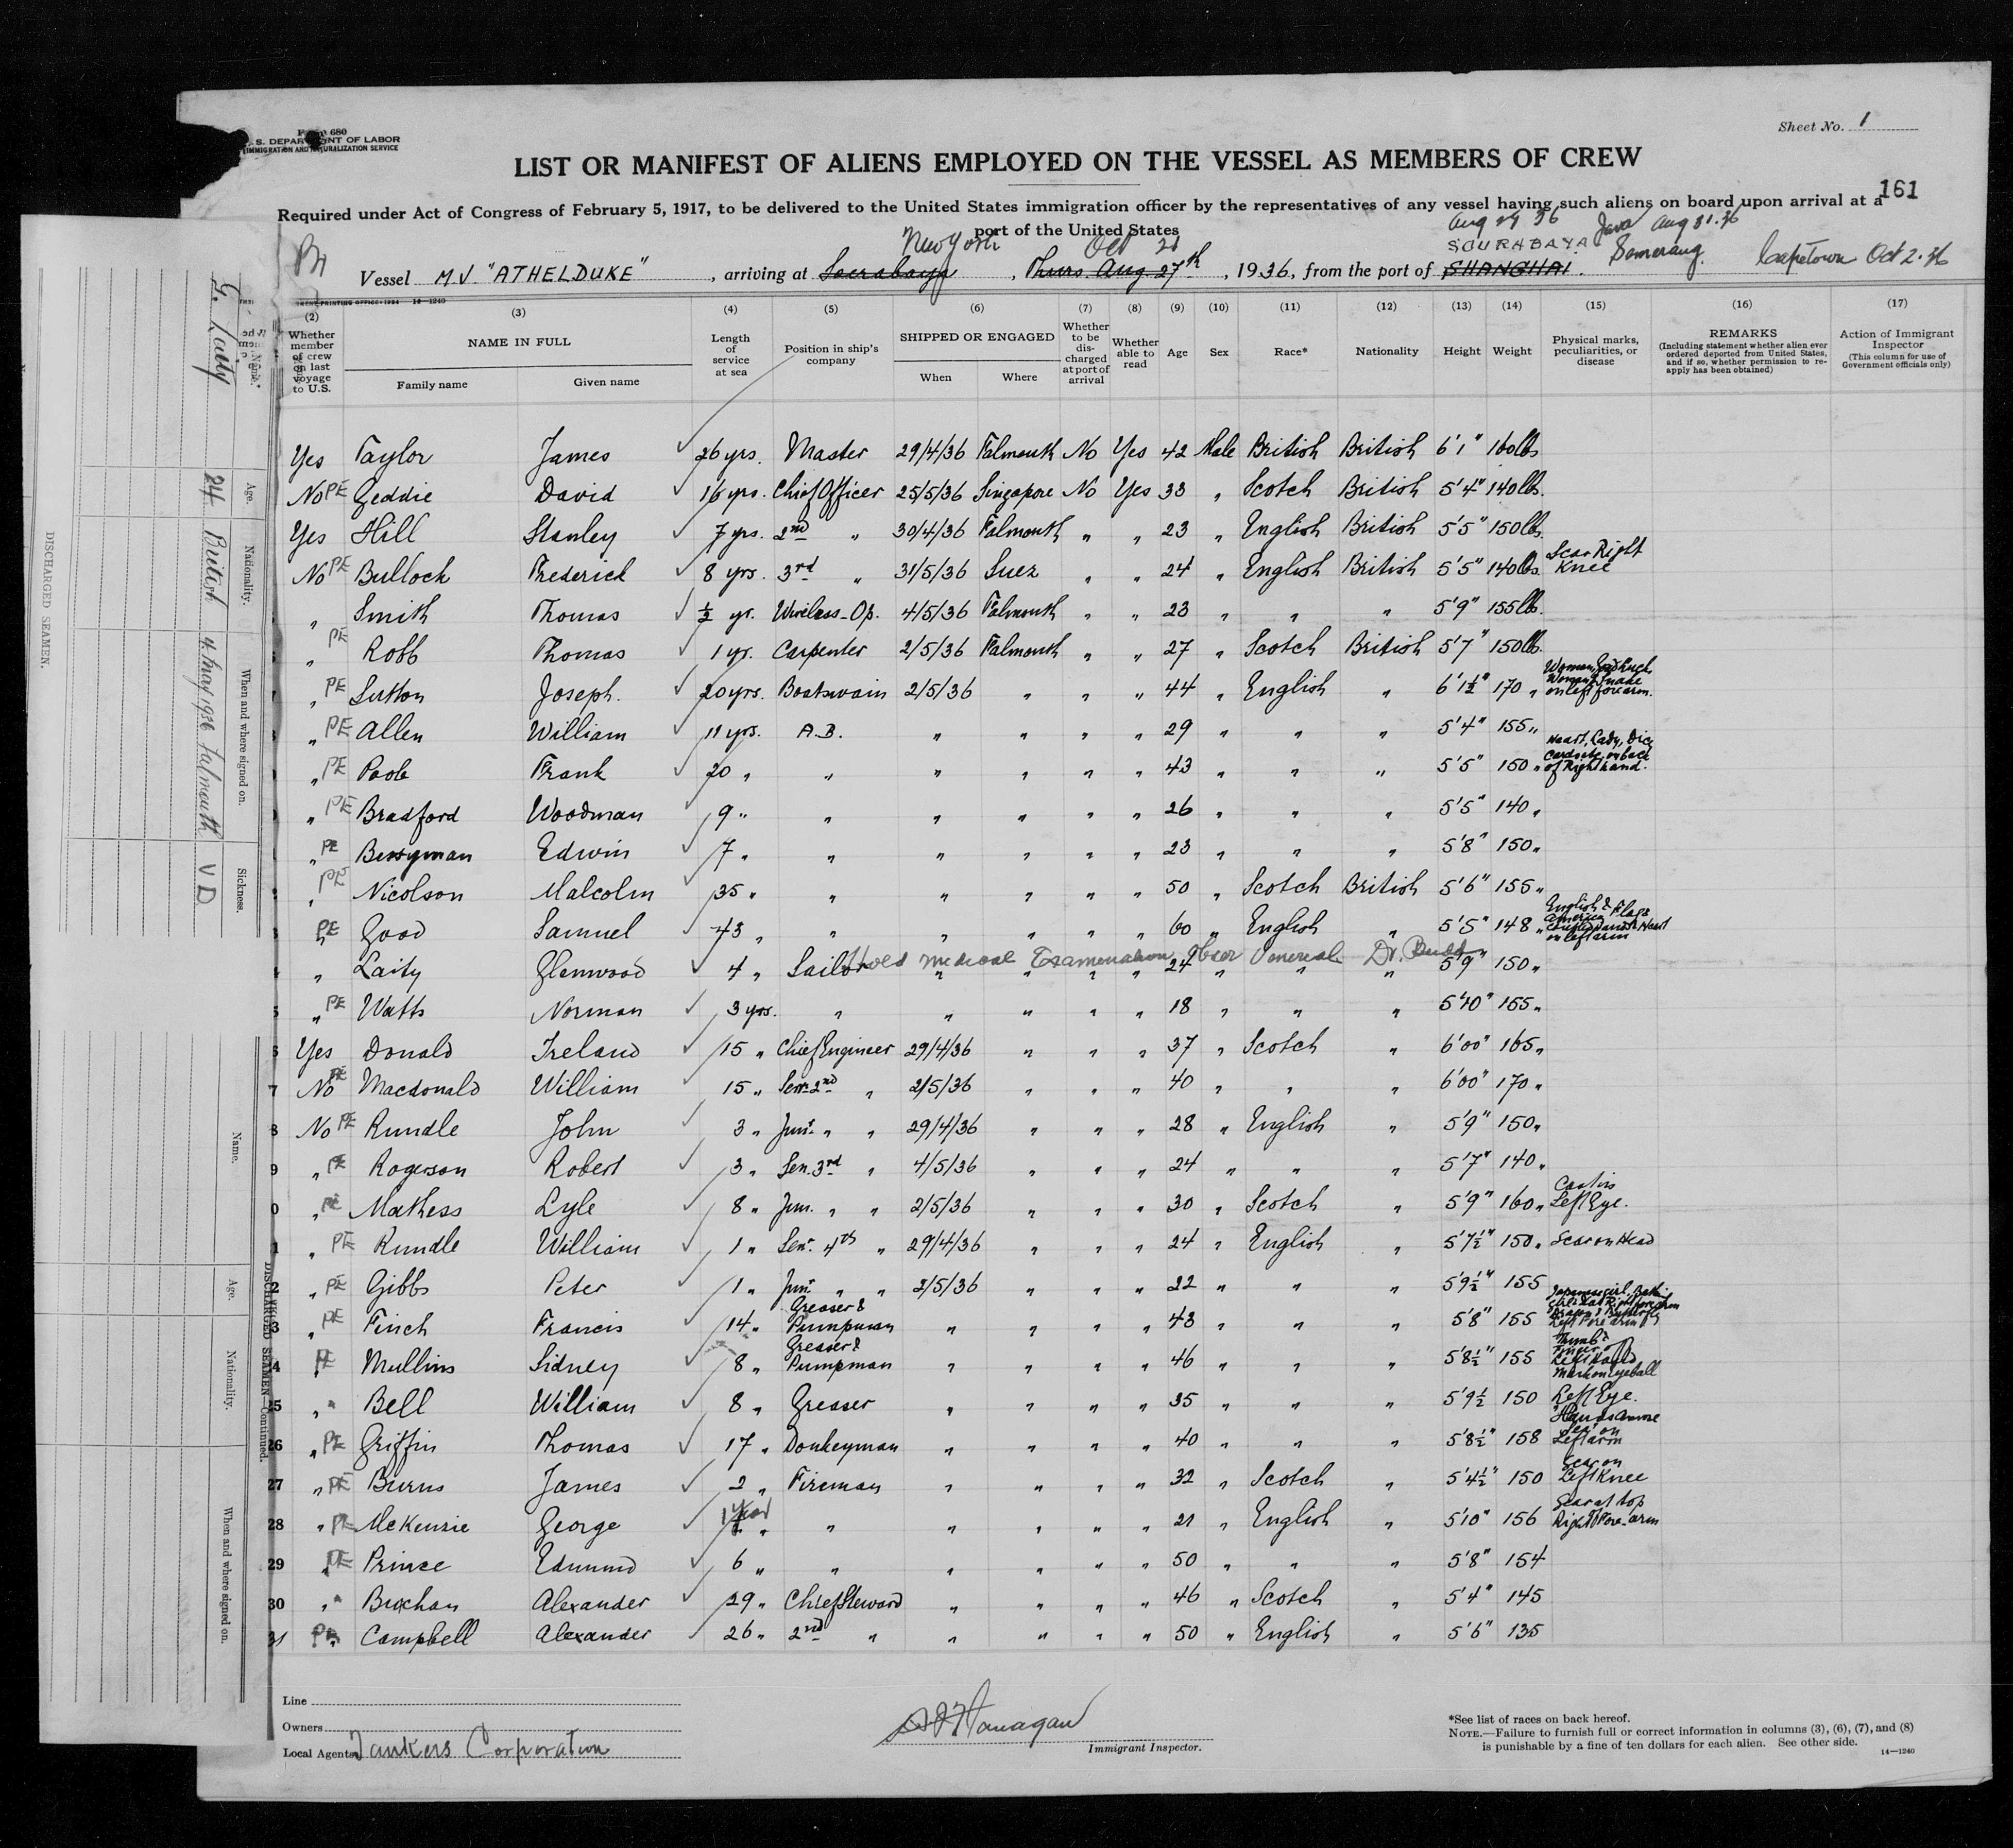 Form 680
U. S. DEPARTMENT OF LABOR
IMMIGRATION AND NATURALIZATION SERVICE
Sheet No. 1
LIST OR MANIFEST OF ALIENS EMPLOYED ON THE VESSEL AS MEMBERS OF CREW
161
Required under Act of Congress of February 5, 1917, to be delivered to the United States immigration officer by the representatives of any vessel having such aliens on board upon arrival at a
port of the United States
New York Oct 21 Aug 29 36 SOURABAYA Java Aug 31.36 Semerang Capetown Oct 2.36
Vessel M.V. "ATHELDUKE", arriving at Soerabaya, Thurs. Aug 27th, 1936, from the port of SHANGHAI.
(2) (3) (4) (5) (6) (7) (8) (9) (10) (11) (12) (13) (14) (15) (16) (17)
Whether member of crew on last voyage to U.S.
NAME IN FULL
Family name Given name
Length of service at sea
Position in ship's company
SHIPPED OR ENGAGED
When Where
Whether to be discharged at port of arrival
Whether able to read
Age
Sex
Race*
Nationality
Height
Weight
Physical marks, peculiarities, or disease
REMARKS
(Including statement whether alien ever ordered deported from United States, and if so, whether permission to re-apply has been obtained)
Action of Immigrant Inspector
(This column for use of Government officials only)
Yes Taylor James 26 yrs. Master 29/4/36 Falmouth No Yes 42 Male British British 6'1" 160lbs
No PE Geddie David 16 yrs. Chief Officer 25/5/36 Singapore No Yes 33 " Scotch British 5'4" 140lbs.
Yes Hill Stanley 7 yrs. 2nd " 30/4/36 Falmouth " " 23 " English British 5'5" 150lbs.
No PE Bullock Frederick 8 yrs. 3rd " 31/5/36 Suez " " 24 " English British 5'5" 140lbs. Scar Right Knee
" Smith Thomas ½ yr. Wireless-Op. 4/5/36 Falmouth " " 23 " " " 5'9" 155lb.
" PE Robb Thomas 1 yr. Carpenter 2/5/36 Falmouth " " 27 " Scotch British 5'7" 150lb.
" PE Sutton Joseph. 20 yrs. Boatswain 2/5/36 " " " 44 " English " 6'1½" 170 " on left forearm.
" PE Allen William 11 yrs. A.B. " " " " 29 " " " 5'4" 155 "
" PE Poole Frank 20 " " " " " " 43 " " " 5'5" 150 " Heart, Lady, Dice Cards etc. on back of Right hand.
" PE Bradford Woodman 9 " " " " " " 26 " " " 5'5" 140 "
" PE Berryman Edwin 7 " " " " " " 23 " " " 5'8" 150 "
" PE Nicolson Malcolm 35 " " " " " " 50 " Scotch British 5'6" 155 "
" PE Good Samuel 43 " " " " " " 60 " English " 5'5" 148 " English & America Flags Hands & Heart on left arm
" Laity Glenwood 4 " Sailor " " " " 24 " " " 5'9" 150 "
Hold Medical Examination Venereal Dr.
" PE Watts Norman 3 yrs. " " " " " 18 " " " 5'10" 155 "
Yes Donald Ireland 15 " Chief Engineer 29/4/36 " " " 37 " Scotch " 6'00" 165 "
7 No PE Macdonald William 15 " Sen. 2nd " 2/5/36 " " " 40 " " " 6'00" 170 "
8 No PE Rundle John 3 " Junr. " " 29/4/36 " " " 28 " English " 5'9" 150 "
9 " PE Rogerson Robert 3 " Sen. 3rd " 4/5/36 " " " 24 " " " 5'7" 140 "
0 " PE Mathess Lyle 8 " Jun. " " 2/5/36 " " " 30 " Scotch " 5'9" 160 " Cast in Left Eye.
1 " PE Rundle William 1 " Senr. 4th " 29/4/36 " " " 24 " English " 5'7½" 150 " Scar on Head
2 " PE Gibbs Peter 1 " Junr. " " 2/5/36 " " " 22 " " " 5'9½" 155
3 " PE Finch Francis 14 " Greaser & Pumpman " " " " 43 " " " 5'8" 155 Left Fore arm
4 PE Mullins Sidney 8 " Greaser & Pumpman " " " " 46 " " " 5'8½" 155 Thumb & Finger of Left Hand
25 " " Bell William 8 " Greaser " " " " 35 " " " 5'9½ 150 Mark on eyeball Left Eye.
26 " PE Griffin Thomas 17 " Donkeyman " " " " 40 " " " 5'8½" 158 Left arm
27 " PE Burns James 2 " Fireman " " " " 32 " Scotch " 5'4½" 150 Scar on Left Knee
28 " PE McKenzie George 1 year " " " " " 21 " English " 5'10" 156 Scar at top Right Fore-arm
29 " PE Prince Edmund 6 " " " " " " 50 " " " 5'8" 154
30 " " Buchan Alexander 29 " Chief Steward " " " " 46 " Scotch " 5'4" 145
31 PE Campbell Alexander 26 " 2nd " " " " " 50 " English " 5'6" 135
Line
Owners
Local Agents Tankers Corporation
Immigrant Inspector.
*See list of races on back hereof.
NOTE.—Failure to furnish full or correct information in columns (3), (6), (7), and (8)
is punishable by a fine of ten dollars for each alien. See other side.
14—1240
DISCHARGED SEAMEN.
Name. Age. Nationality. When and where signed on. Sickness.
G. Laity 24 British 4. May 1936 Falmouth V D
DISCHARGED SEAMEN—Continued.
Name. Age. Nationality. When and where signed on.